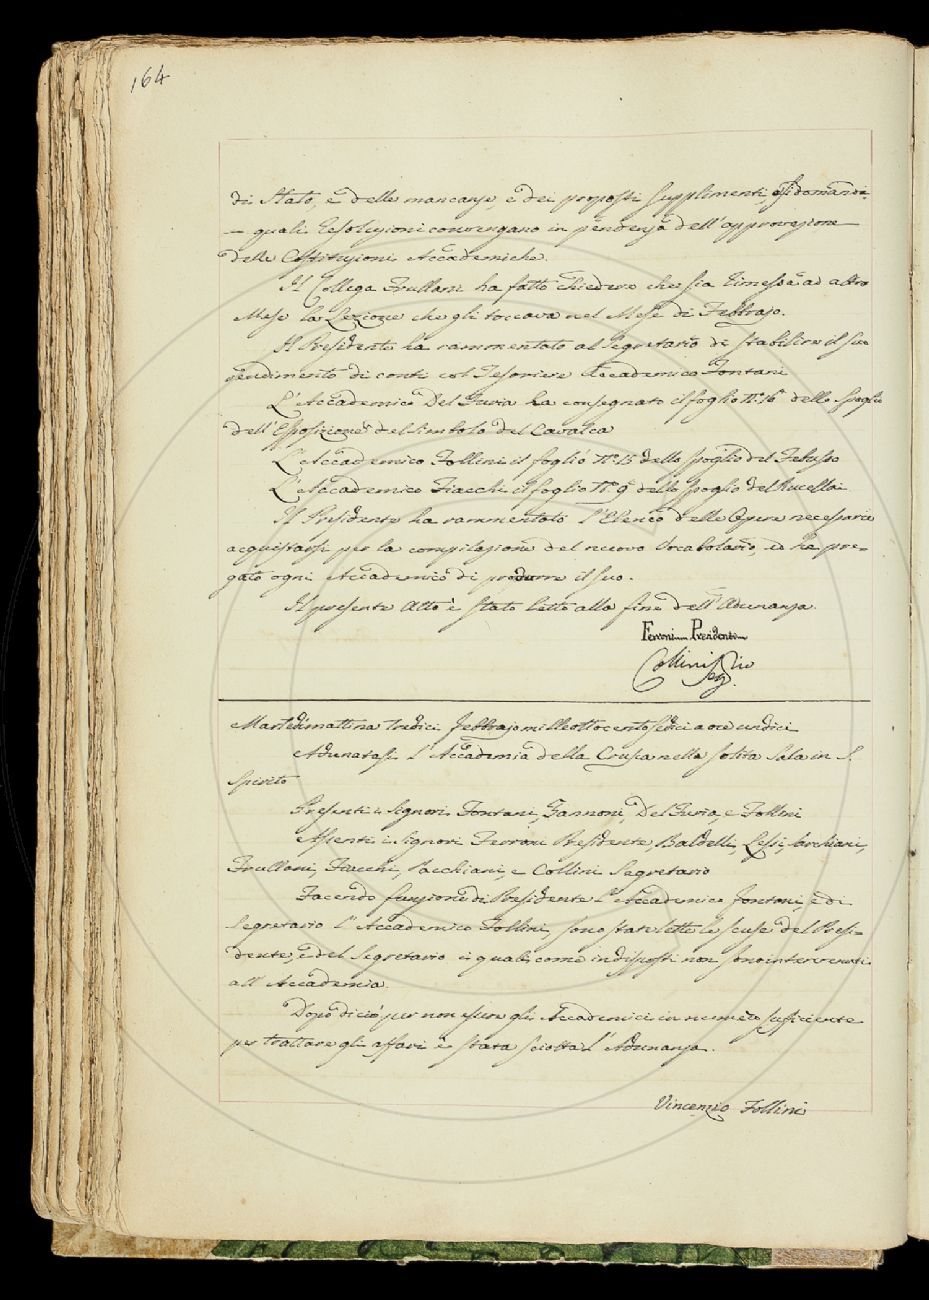 164
di Stato, e delle mancanze, e dei proposti supplimenti, e si domandi
quali Resoluzioni convengano in pendenza dell'approvazione
delle Costituzioni Accademiche.
Il Collega Frullani ha fatto chiedere che sia rimessa ad altro
Mese la Lezione che gli toccava nel Mese di Febbrajo.
Il Presidente ha rammentato al Segretario di stabilire il suo
rendimento di conti col Tesoriere Accademico Fontani
L'Accademico Del Furia ha consegnato il foglio N.º 16º dello Spoglio
dell'Esposizione del Simbolo del Cavalca
L'Accademico Follini il foglio N.º 15 dello spoglio del Febusso
L'Accademico Fiacchi il foglio N.º 9º dello spoglio del Rucellai
Il Presidente ha rammentato l'Elenco delle Opere necessarie
acquistarsi per la compilazione del nuovo Vocabolario, ed ha pre-
gato ogni Accademico di produrre il suo.
Il presente Atto è stato letto alla fine dell'Adunanza.
Ferroni Presidente
Collini Seg.rio
Martedì mattina tredici febbrajo milleottocentosedici a ore undici
Adunatasi l'Accademia della Crusca nella solita Sala in S.
Spirito
Presenti i Signori Fontani, Zannoni, Del Furia, e Follini
Assenti i Signori Ferroni Presidente, Baldelli, Lessi, Sarchiani,
Frullani, Fiacchi, Pacchiani, e Collini Segretario
Facendo funzione di Presidente l'Accademico fontani, e di
Segretario l'Accademico Follini, sono state lette le scuse del Presi-
dente, e del Segretario i quali come indisposti non sono intervenuti
all'Accademia.
Dopo di ciò per non essere gli Accademici in numero suficiente
per trattare gli affari è stata sciolta l'Adunanza.
Vincenzio Follini